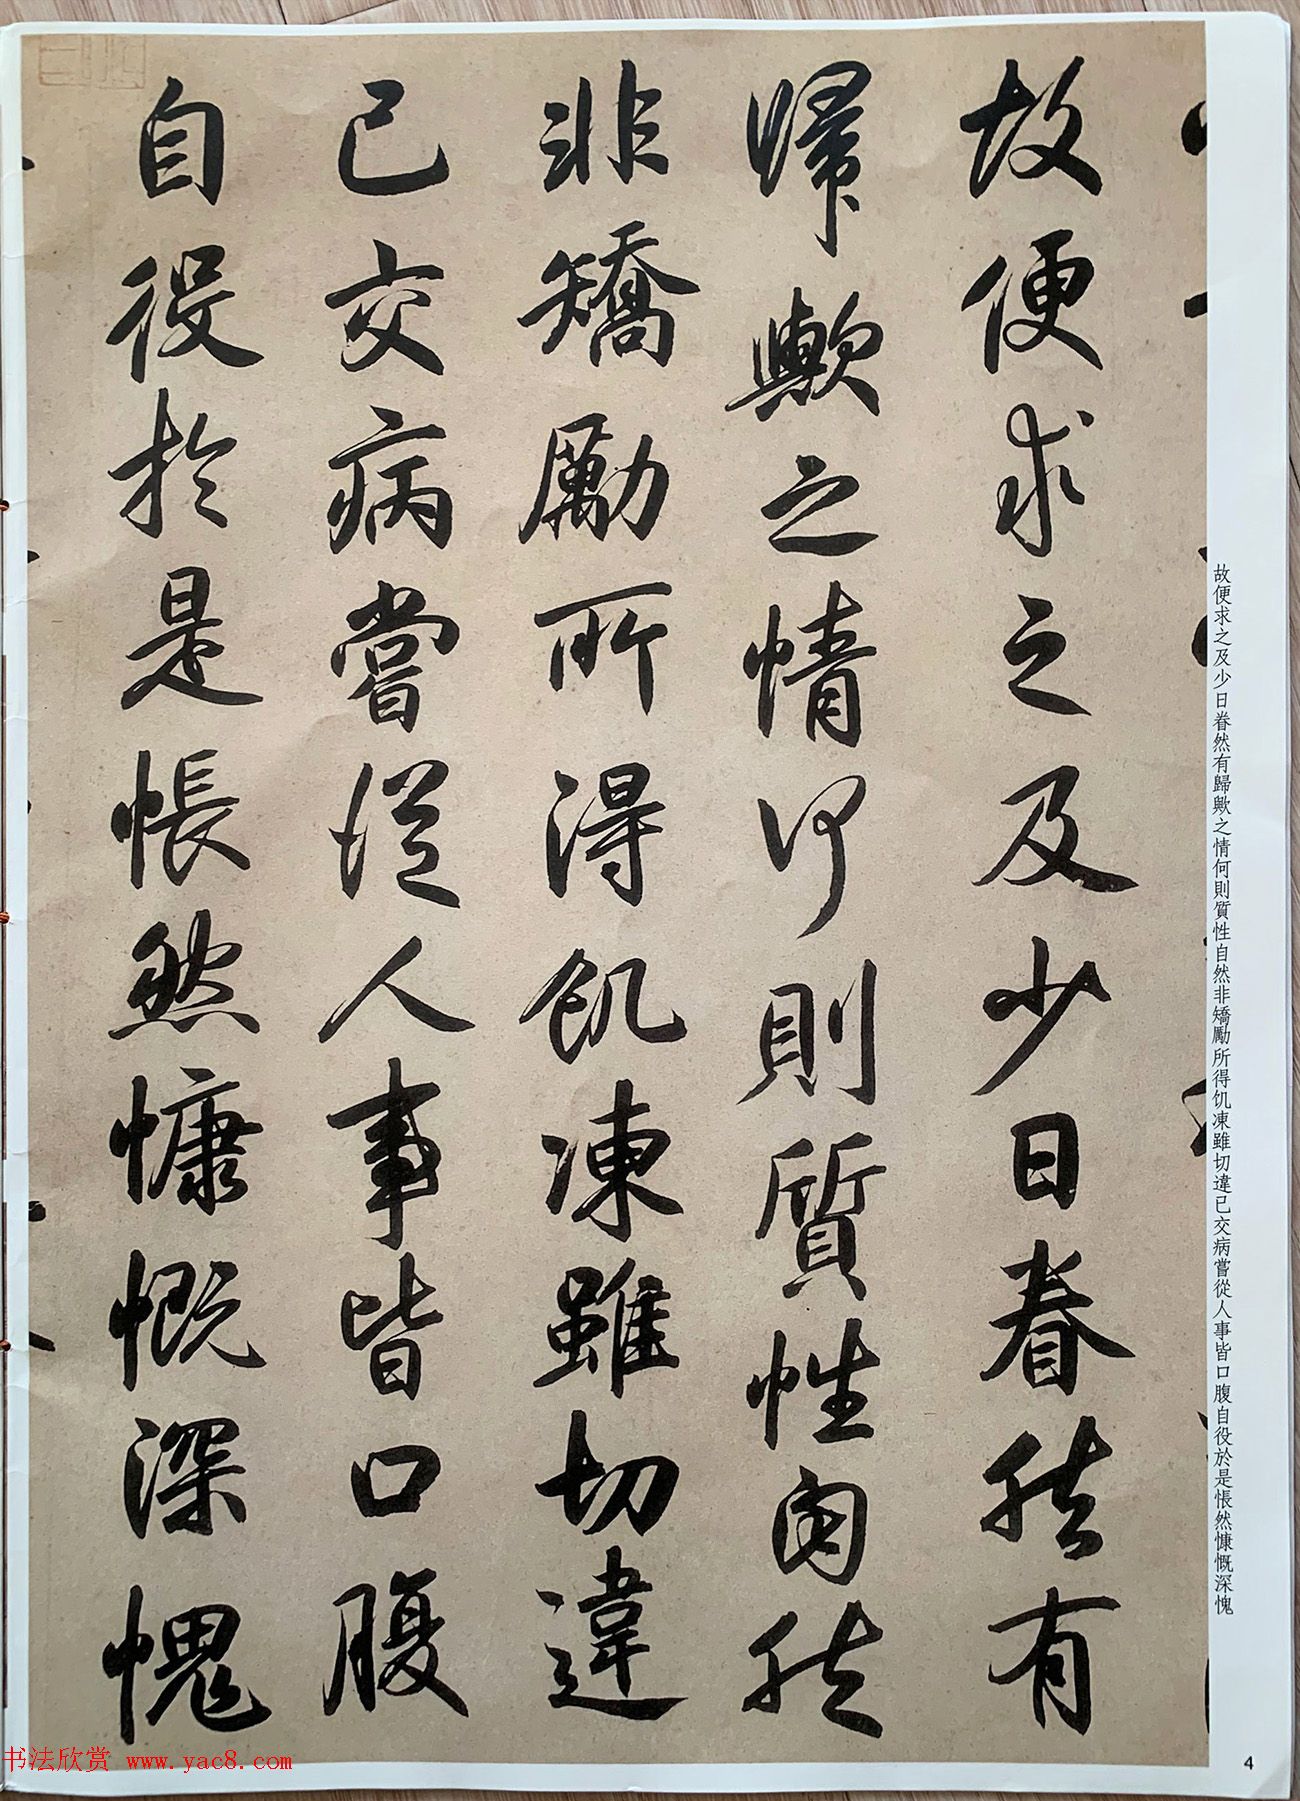 故便求之及少日眷然有
歸歟之情何則質性自然
非矯勵所得飢凍雖切違
己交病嘗從人事皆口腹
自役於是悵然慷慨深愧
故便求之及少日眷然有歸歟之情何則質性自然非矯勵所得饥凍雖切違已交病嘗從人事皆口腹自役於是悵然慷慨深愧
4
书法欣赏 www.yac8.com